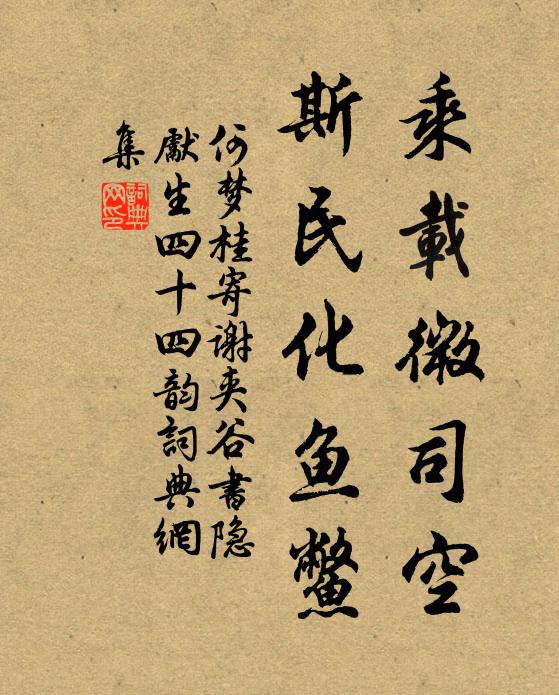 乘載微司空
斯民化鱼鳖
何梦桂寄谢夹谷書隐
獻生四十四韵詞典網
集
詞典网印